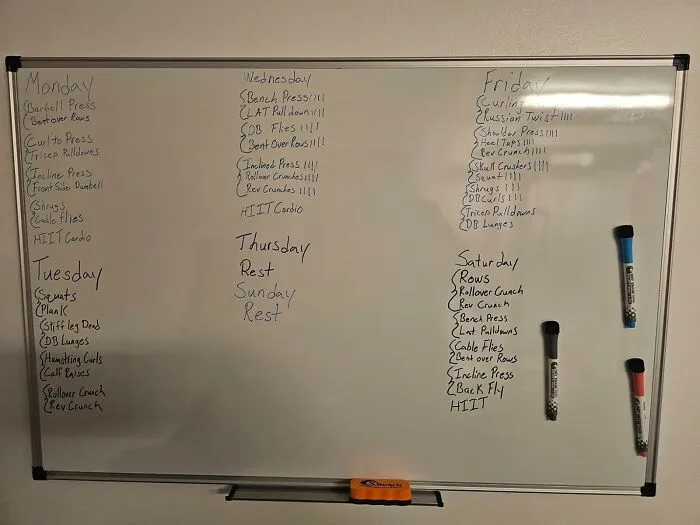 Monday
Barbell Press
Bent over Rows
Curl to Press
Tricep Pulldowns
Incline Press
Front Side Dumbell
Shrugs
Cable flies
HIIT Cardio
Tuesday
Squats
Plank
Stiff leg Dead
DB Lunges
Hamstring Curls
Calf Raises
Rollover Crunch
Rev Crunch
Wednesday
Bench Press ||||
LAT Pulldown ||||
DB Flies ||||
Bent Over Rows ||||
Inclined Press ||||
Rollover Crunches ||||
Rev Crunches ||||
HIIT Cardio
Thursday
Rest
Sunday
Rest
Friday
Curling
Russian Twist ||||
Shoulder Press ||||
Heel Taps ||||
Rev Crunch ||||
Skull Crushers ||||
Squat ||||
Shrugs |||
DB Curls |||
Tricep Pulldowns
DB Lunges
Saturday
Rows
Rollover Crunch
Rev Crunch
Bench Press
Lat Pulldowns
Cable Flies
Bent over Rows
Incline Press
Back Fly
HIIT
Board